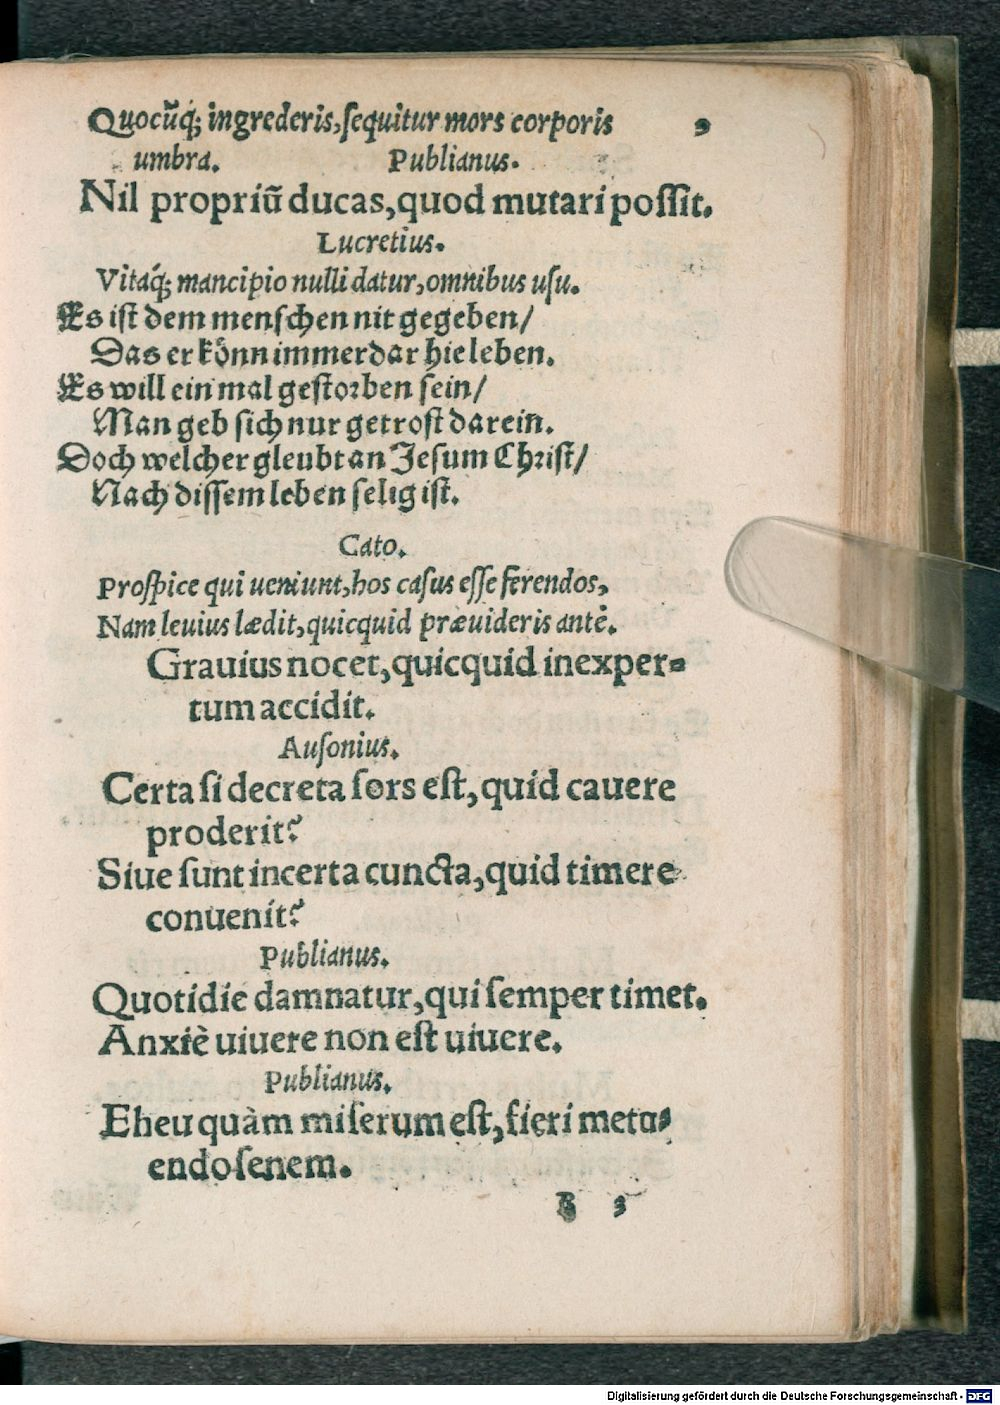 Quocũq; ingrederis, ſequitur mors corporis
umbra. Publianus.
Nil propriũ ducas, quod mutari poſſit.
Lucretius.
Vitaq́; mancipio nulli datur, omnibus uſu.
Es iſt dem menſchen nit gegeben/
Das er koͤnn immerdar hie leben.
Es will ein mal geſtorben ſein/
Man geb ſich nur getroſt darein̄.
Doch welcher gleubt an Jeſum Chriſt/
Nach diſſem leben ſelig iſt.
Cato.
Proſpice qui ueniunt, hos caſus eſſe ferendos,
Nam leuius lædit, quicquid præuideris antè.
Grauius nocet, quicquid inexper-
tum accidit.
Auſonius.
Certa ſi decreta ſors eſt, quid cauere
proderit?
Siue ſunt incerta cuncta, quid timere
conuenit?
Publianus.
Quotidie damnatur, qui ſemper timet.
Anxiè uiuere non eſt uiuere.
Publianus.
Eheu quàm miſerum eſt, fieri metu-
endo ſenem.
B 3
Digitalisierung gefördert durch die Deutsche Forschungsgemeinschaft - DFG